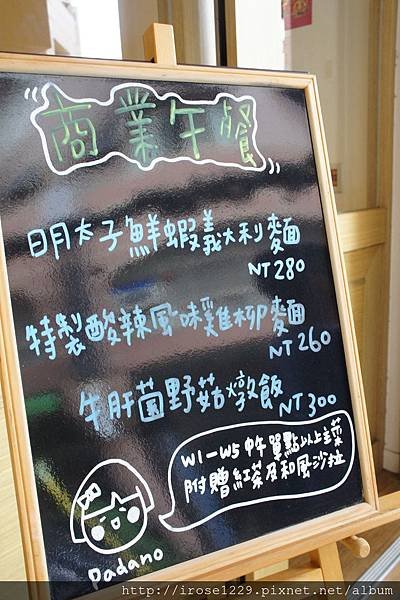 商業午餐
明太子鮮蝦義大利麵
NT 280
特製酸辣風味雞柳麵
NT 260
牛肝菌野菇燉飯
NT 300
W1—W5 中午單點以上主菜
附贈紅茶及和風沙拉
Padano
http://irose1229.pixnet.net/album